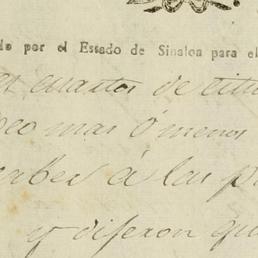 do por el Estado de Sinaloa para el
cuartos de titu
oco mas ó menos
á las p
y dijeron qu